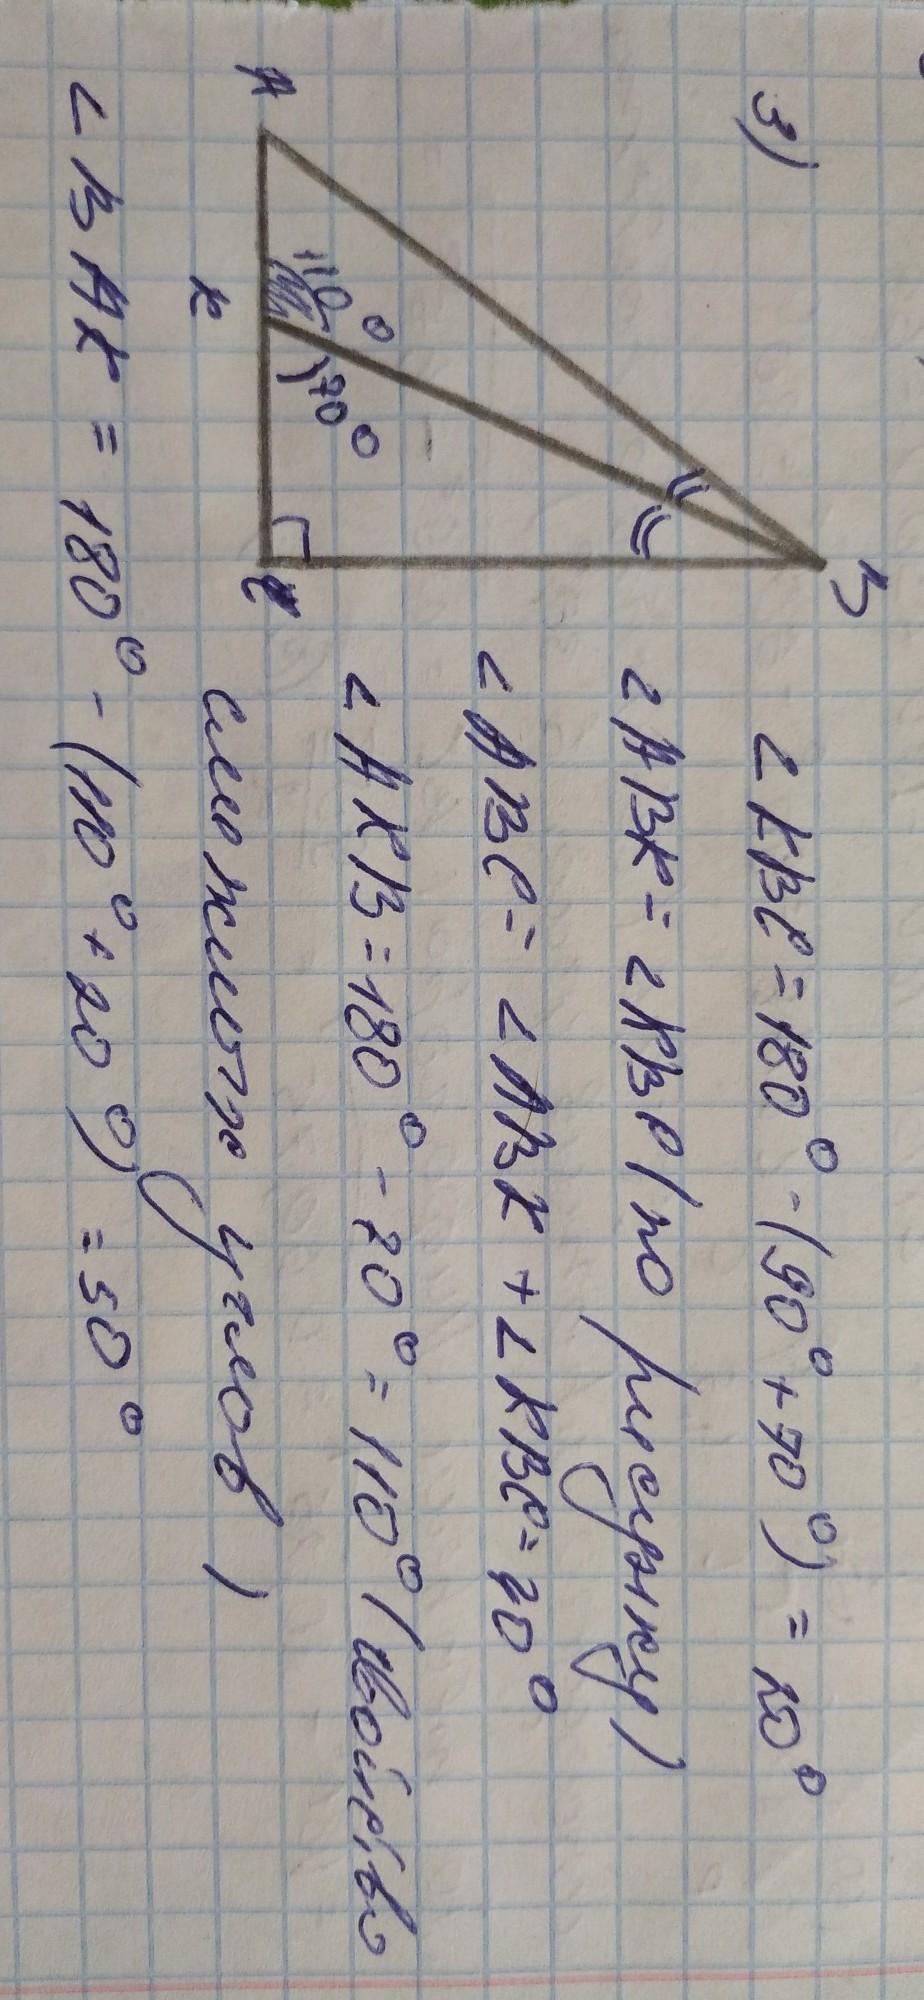 3)
B
110°
70°
A
K
C
∠KBC = 180° - (90° + 70°) = 20°
∠ABK = ∠KBC (по рисунку)
∠ABC = ∠ABK + ∠KBC = 20°
∠AKB = 180° - 70° = 110° (свойство
смежнотх углов)
∠BAK = 180° - (110° + 20°) = 50°